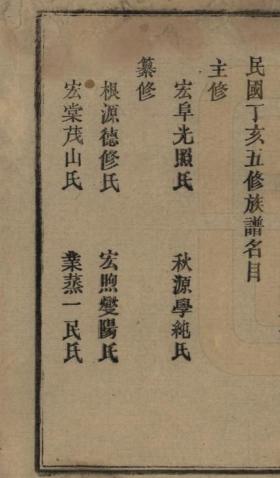 民國丁亥五修族譜名目
主修
宏阜光照氏　秋源學純氏
纂修
根源德修氏　宏煦燮陽氏
宏棠茂山氏　業蒸一民氏